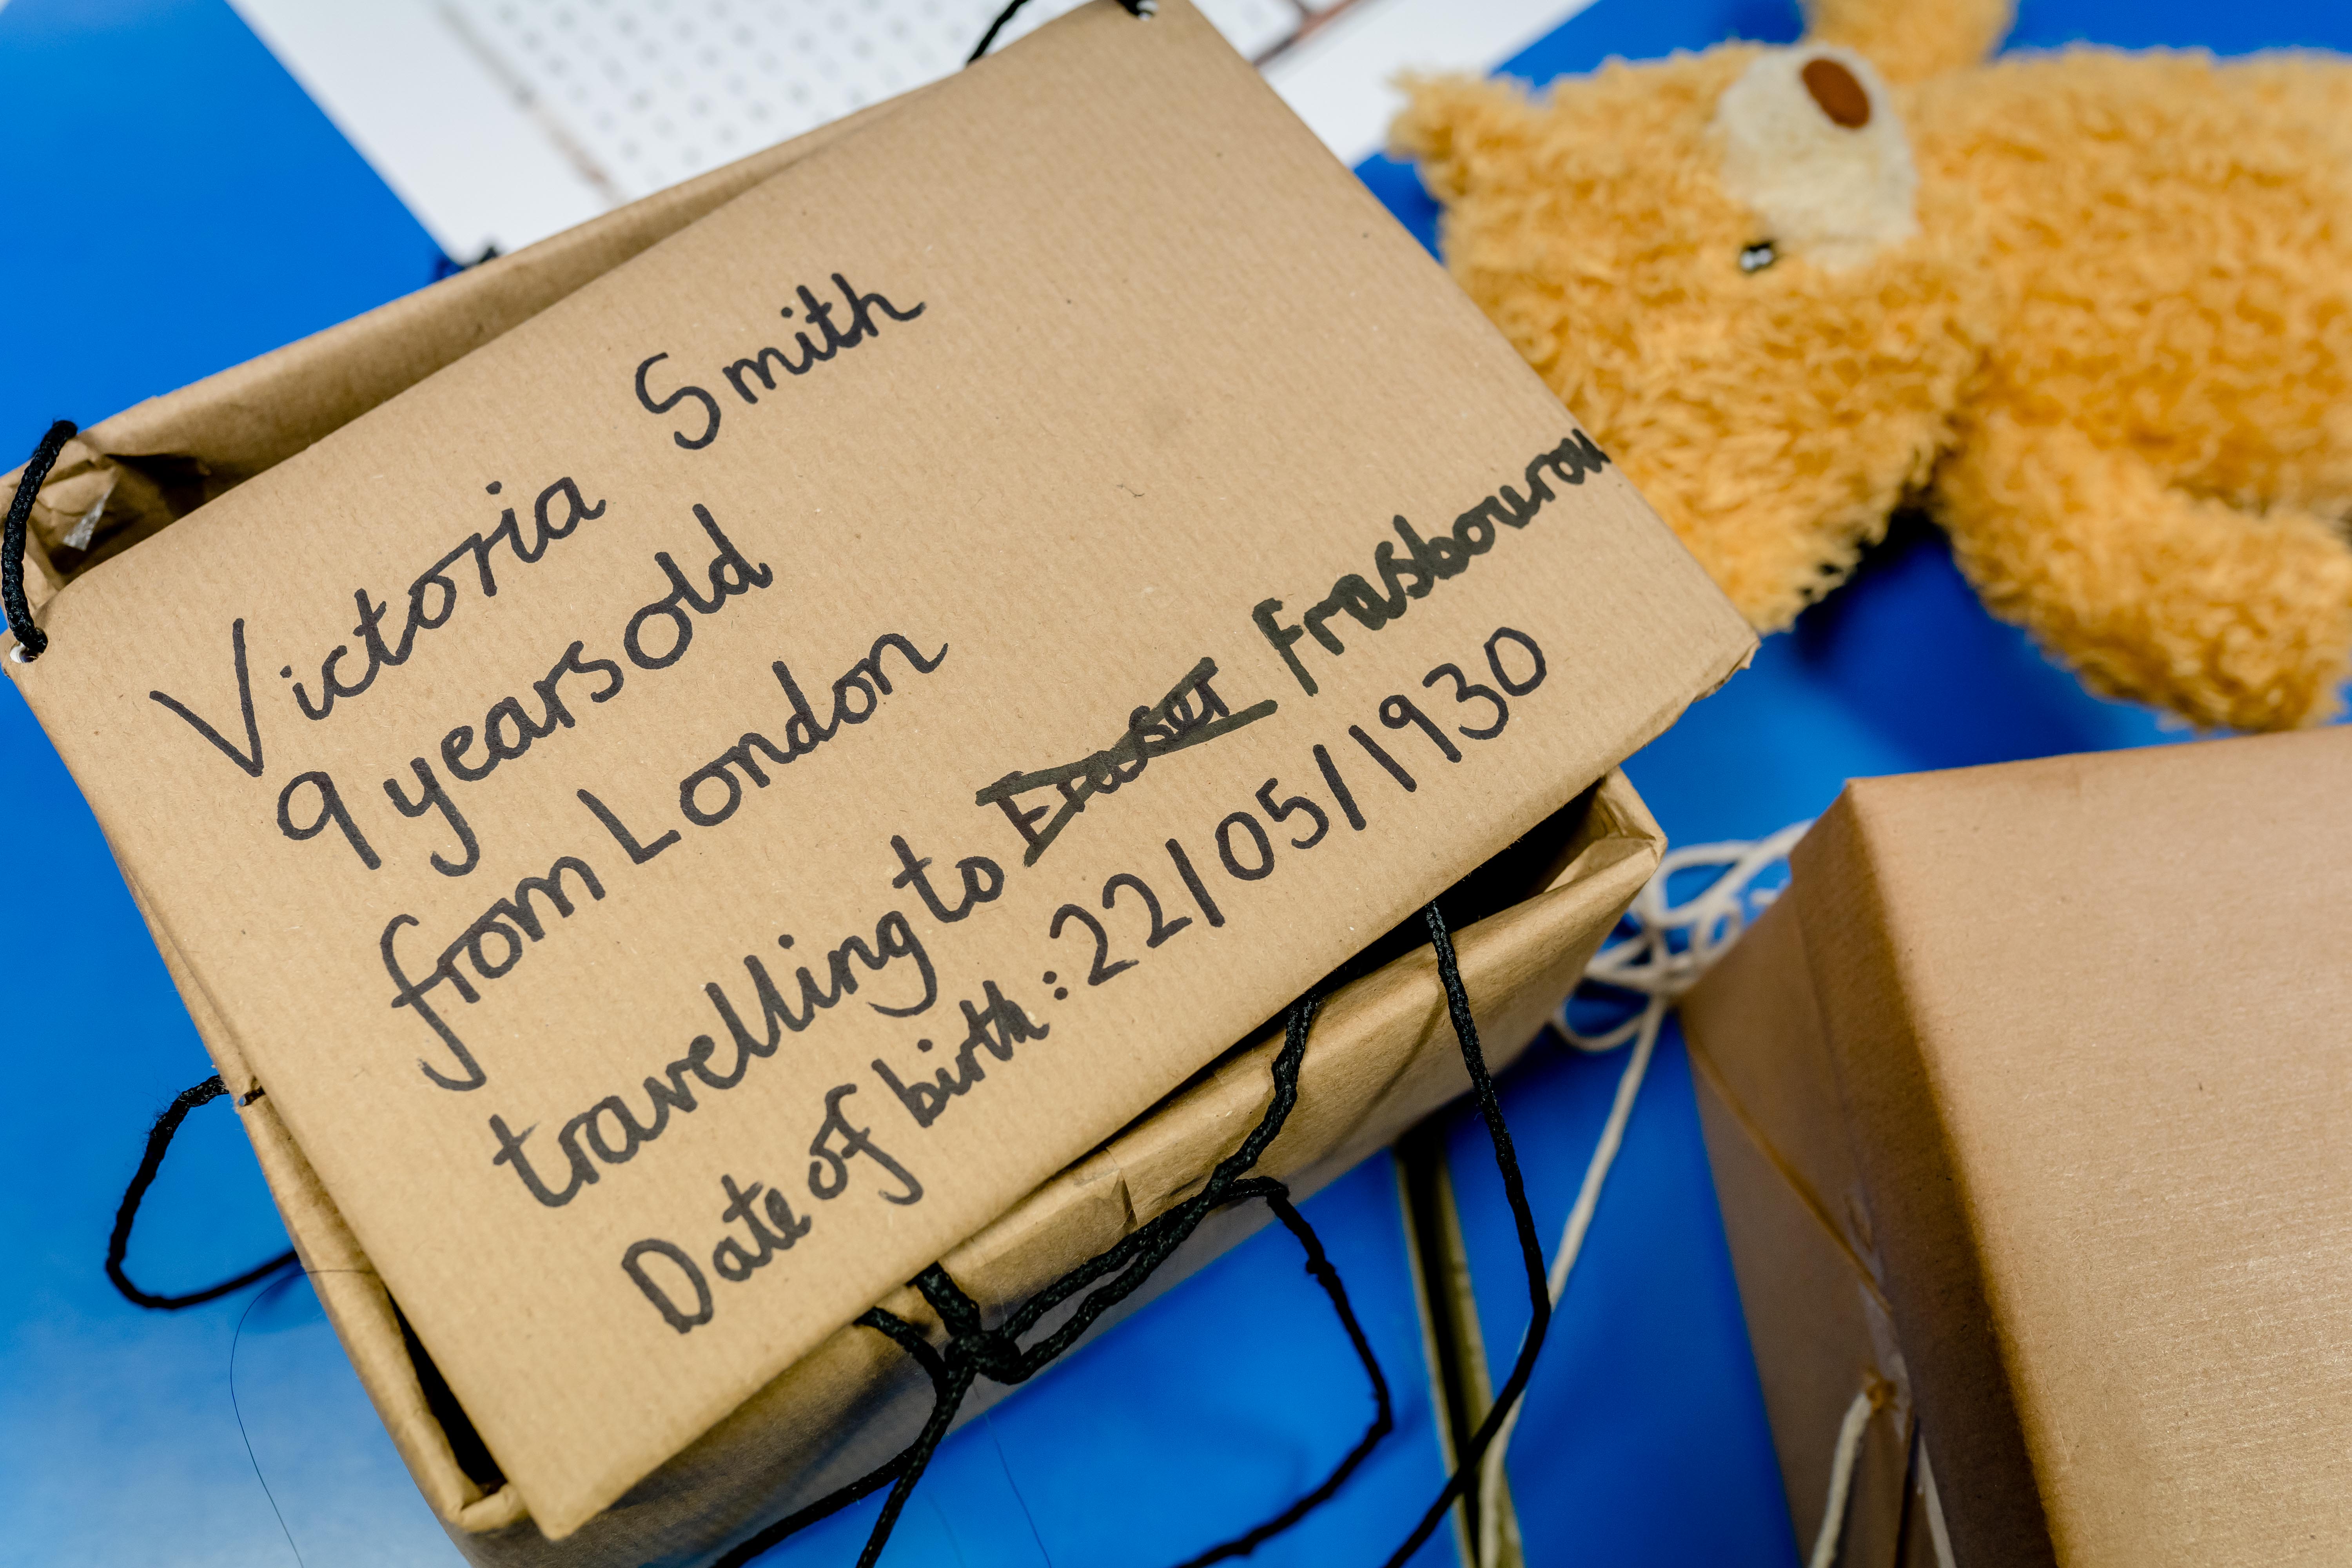 Victoria Smith
9 years old
from London
travelling to Fraser Frasbourow
Date of birth: 22/05/1930